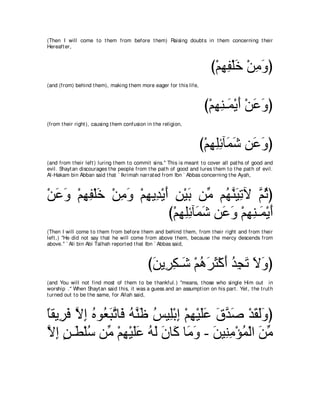 (Then I will come to them from before them) Raising doubts in them concerning their
Hereafter,
(وَمِنْ خَلْفِهِمْ)
(and (from) behind them), making them more eager for this life,
(وَعَنْ أَيْمَـنِهِمْ)
(from their right), causing them confusion in the religion,
(وَعَن شَمَآئِلِهِمْ)
(and from their left) luring them to commit sins." This is meant to cover all paths of good and
evil. Shaytan discourages the people from the path of good and lures them to the path of evil.
Al-Hakam bin Abban said that `Ikrimah narrated from Ibn `Abbas concerning the Ayah,
(ثُمَّ لآتِيَنَّهُم مِّن بَيْنِ أَيْدِيهِمْ وَمِنْ خَلْفِهِمْ وَعَنْ
أَيْمَـنِهِمْ وَعَن شَمَآئِلِهِمْ)
(Then I will come to them from before them and behind them, from their right and from their
left,) "He did not say that he will come from above them, because the mercy descends from
above." `Ali bin Abi Talhah reported that Ibn `Abbas said,
(وَلاَ تَجِدُ أَكْثَرَهُمْ شَـكِرِينَ)
(and You will not find most of them to be thankful.) "means, those who single Him out in
worship ." When Shaytan said this, it was a guess and an assumption on his part. Yet, the truth
turned out to be the same, for Allah said,
(وَلَقَدْ صَدَّقَ عَلَيْهِمْ إِبْلِيسُ ظَنَّهُ فَاتَّبَعُوهُ إِلاَّ فَرِيقاً
مِّنَ الْمُؤْمِنِينَ - وَمَا كَانَ لَهُ عَلَيْهِمْ مِّن سُلْطَـنٍ إِلاَّ